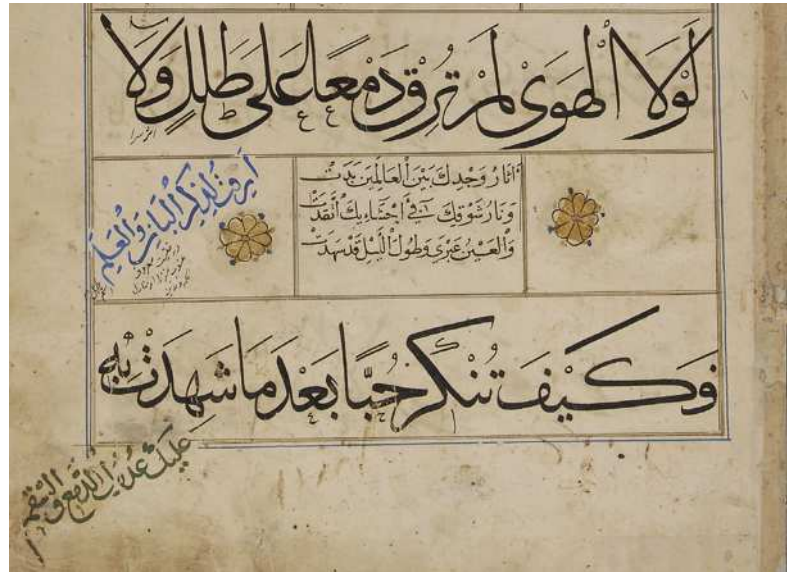 لَوْلَا الْهَوَىٰ لَمْ تُرِقْ دَمْعًا عَلَى طَلَلٍ وَلَا
أَرِقْتَ لِذِكْرِ الْبَانِ وَالْعَلَمِ
آثَارُ وَجْدِكَ بَيْنَ الْعَالَمِينَ بَدَتْ
وَنَارُ شَوْقِكَ فِي أَحْشَائِكَ اتَّقَدَتْ
وَالْعَيْنُ عَبْرَى وَطُولَ اللَّيْلِ قَدْ سَهِدَتْ
فَكَيْفَ تُنْكِرُ حُبًّا بَعْدَ مَا شَهِدَتْ بِهِ
عَلَيْكَ عُدُولُ الدَّمْعِ وَالسَّقَمِ